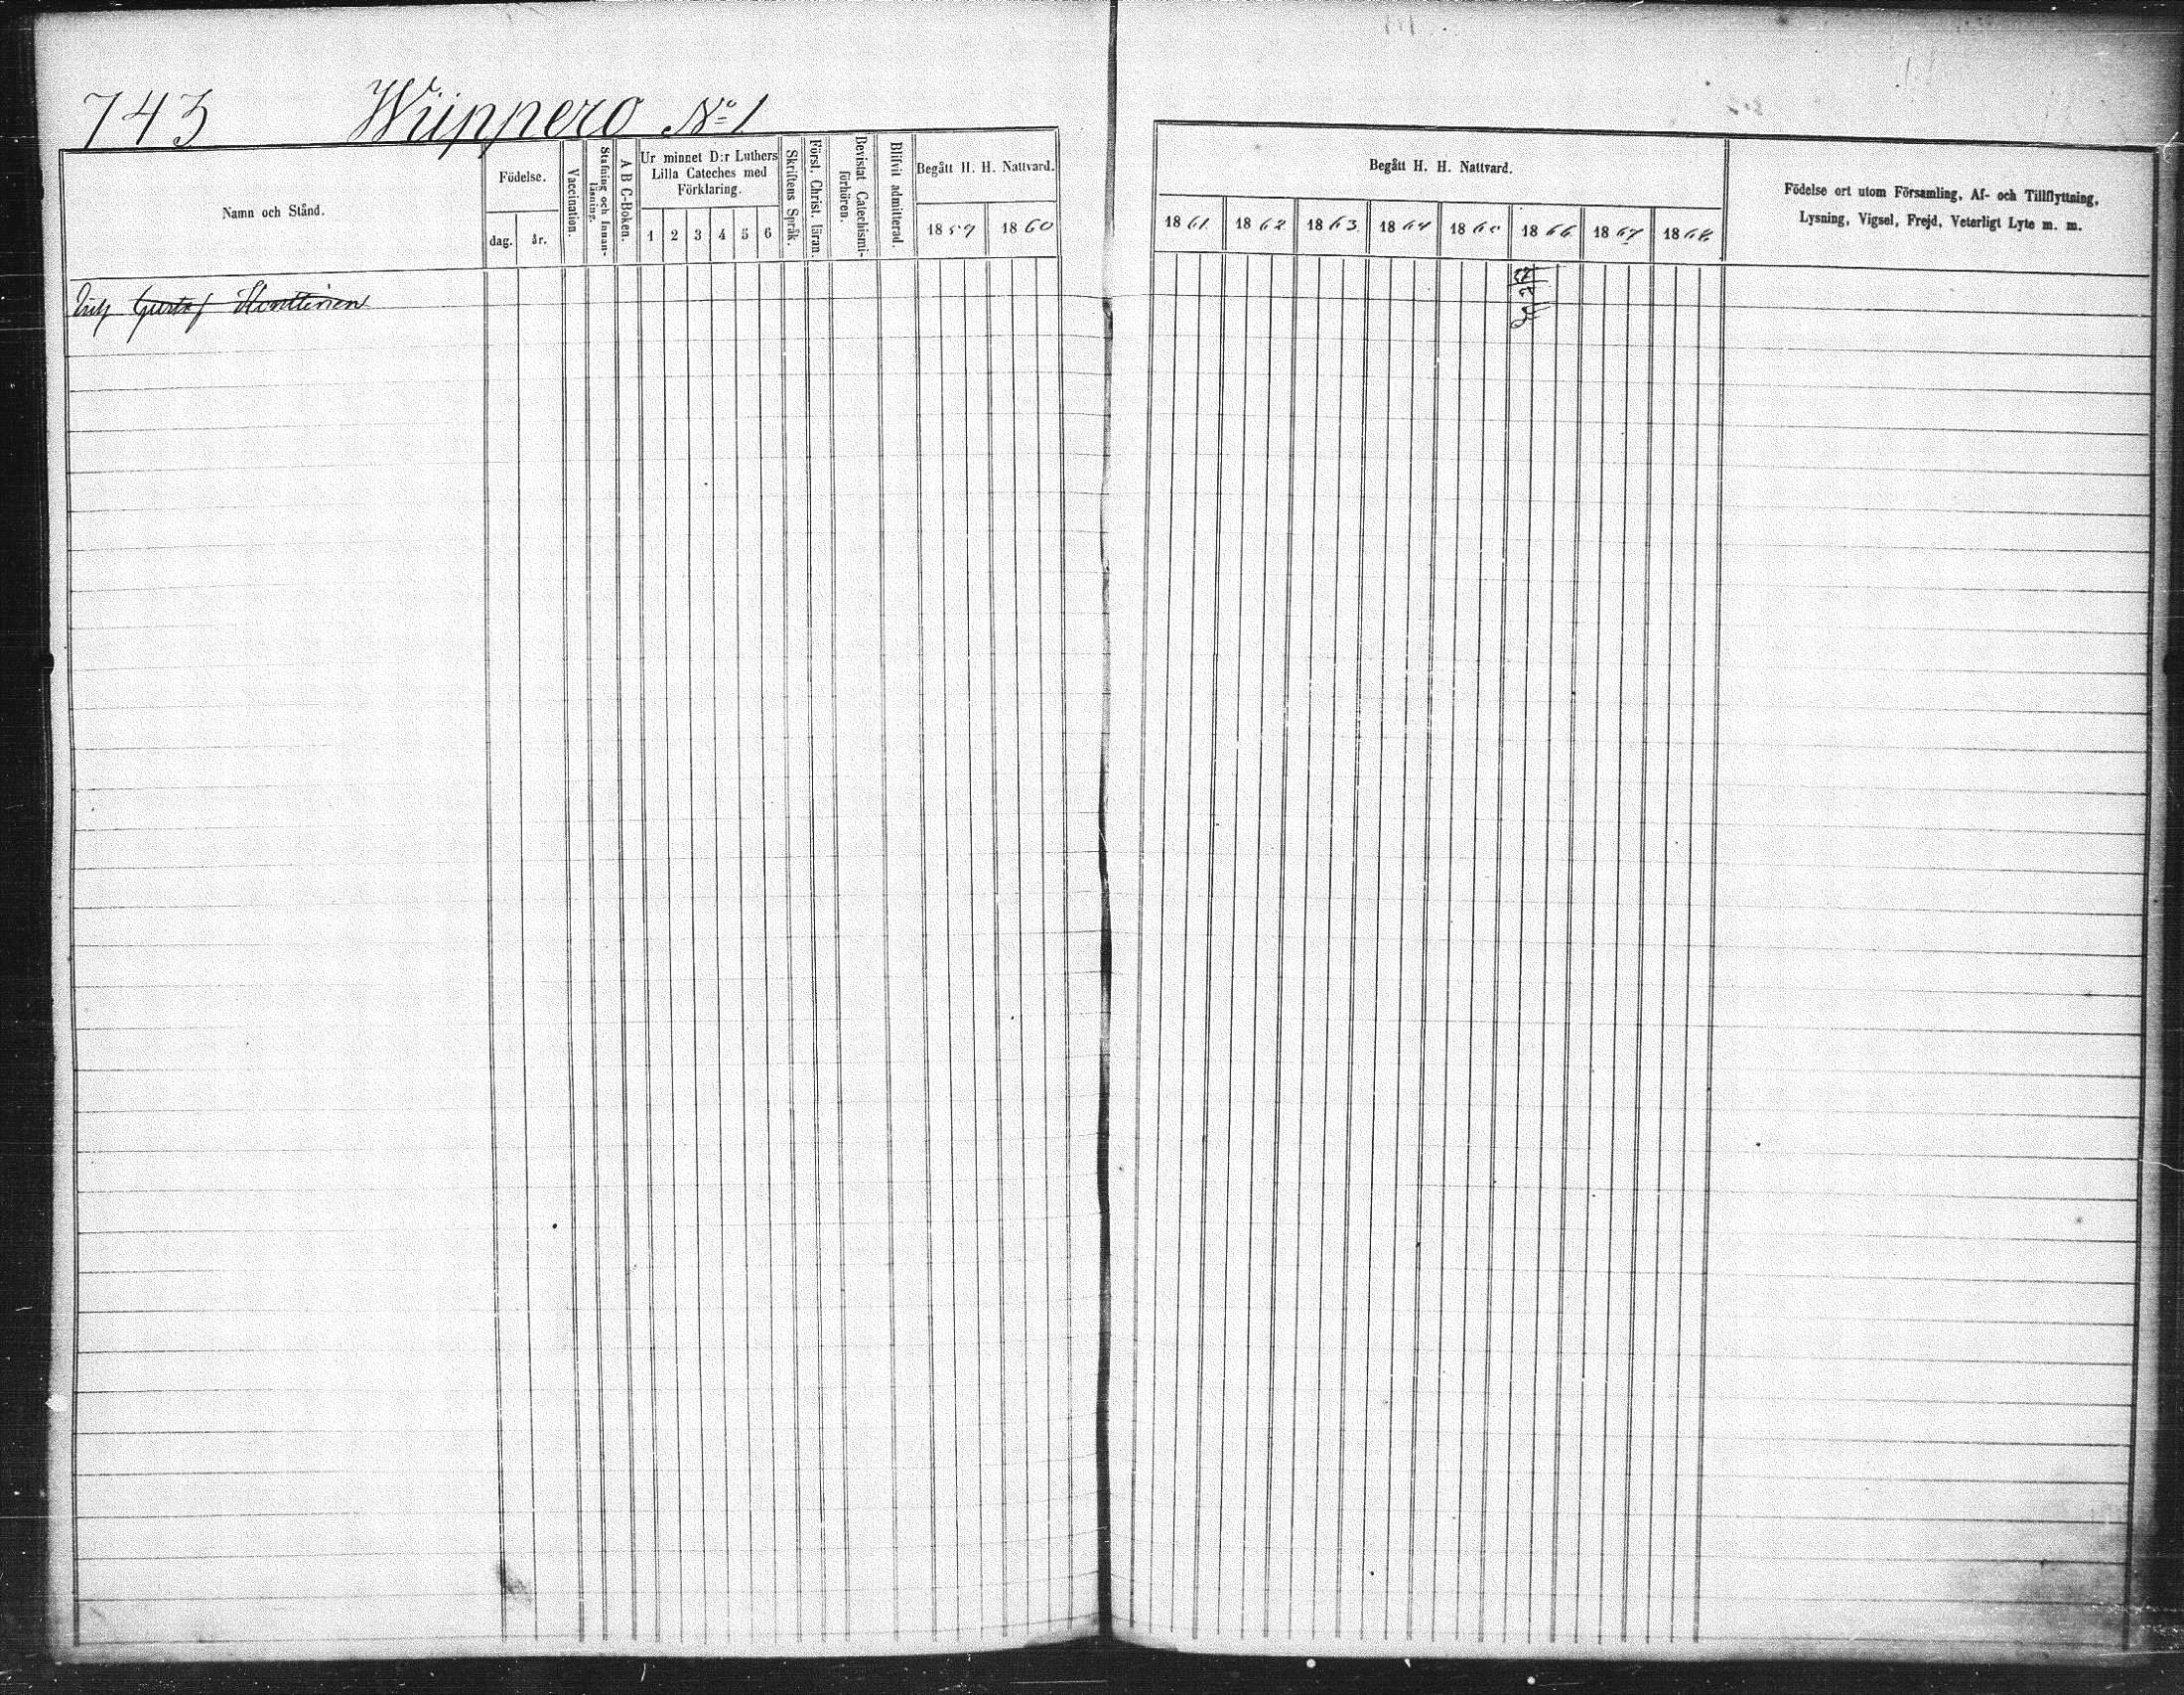 743 Wiippero No 1
Namn och Stånd.
Födelse.
dag. år.
Vaccination.
Stafning och Innan-
läsning.
A B C-Boken.
Ur minnet D:r Luthers
Lilla Cateches med
Förklaring.
1 2 3 4 5 6
Skriftens Språk.
Först. Christ. läran.
Bevistat Catechismi-
förhören.
Blifvit admitterad.
Begått H. H. Nattvard.
1859 1860
Gustaf Honttinen
Begått H. H. Nattvard.
1861. 1862 1863. 1864 1865 1866. 1867 1868.
Födelse ort utom Församling, Af- och Tillflyttning,
Lysning, Vigsel, Frejd, Veterligt Lyte m. m.